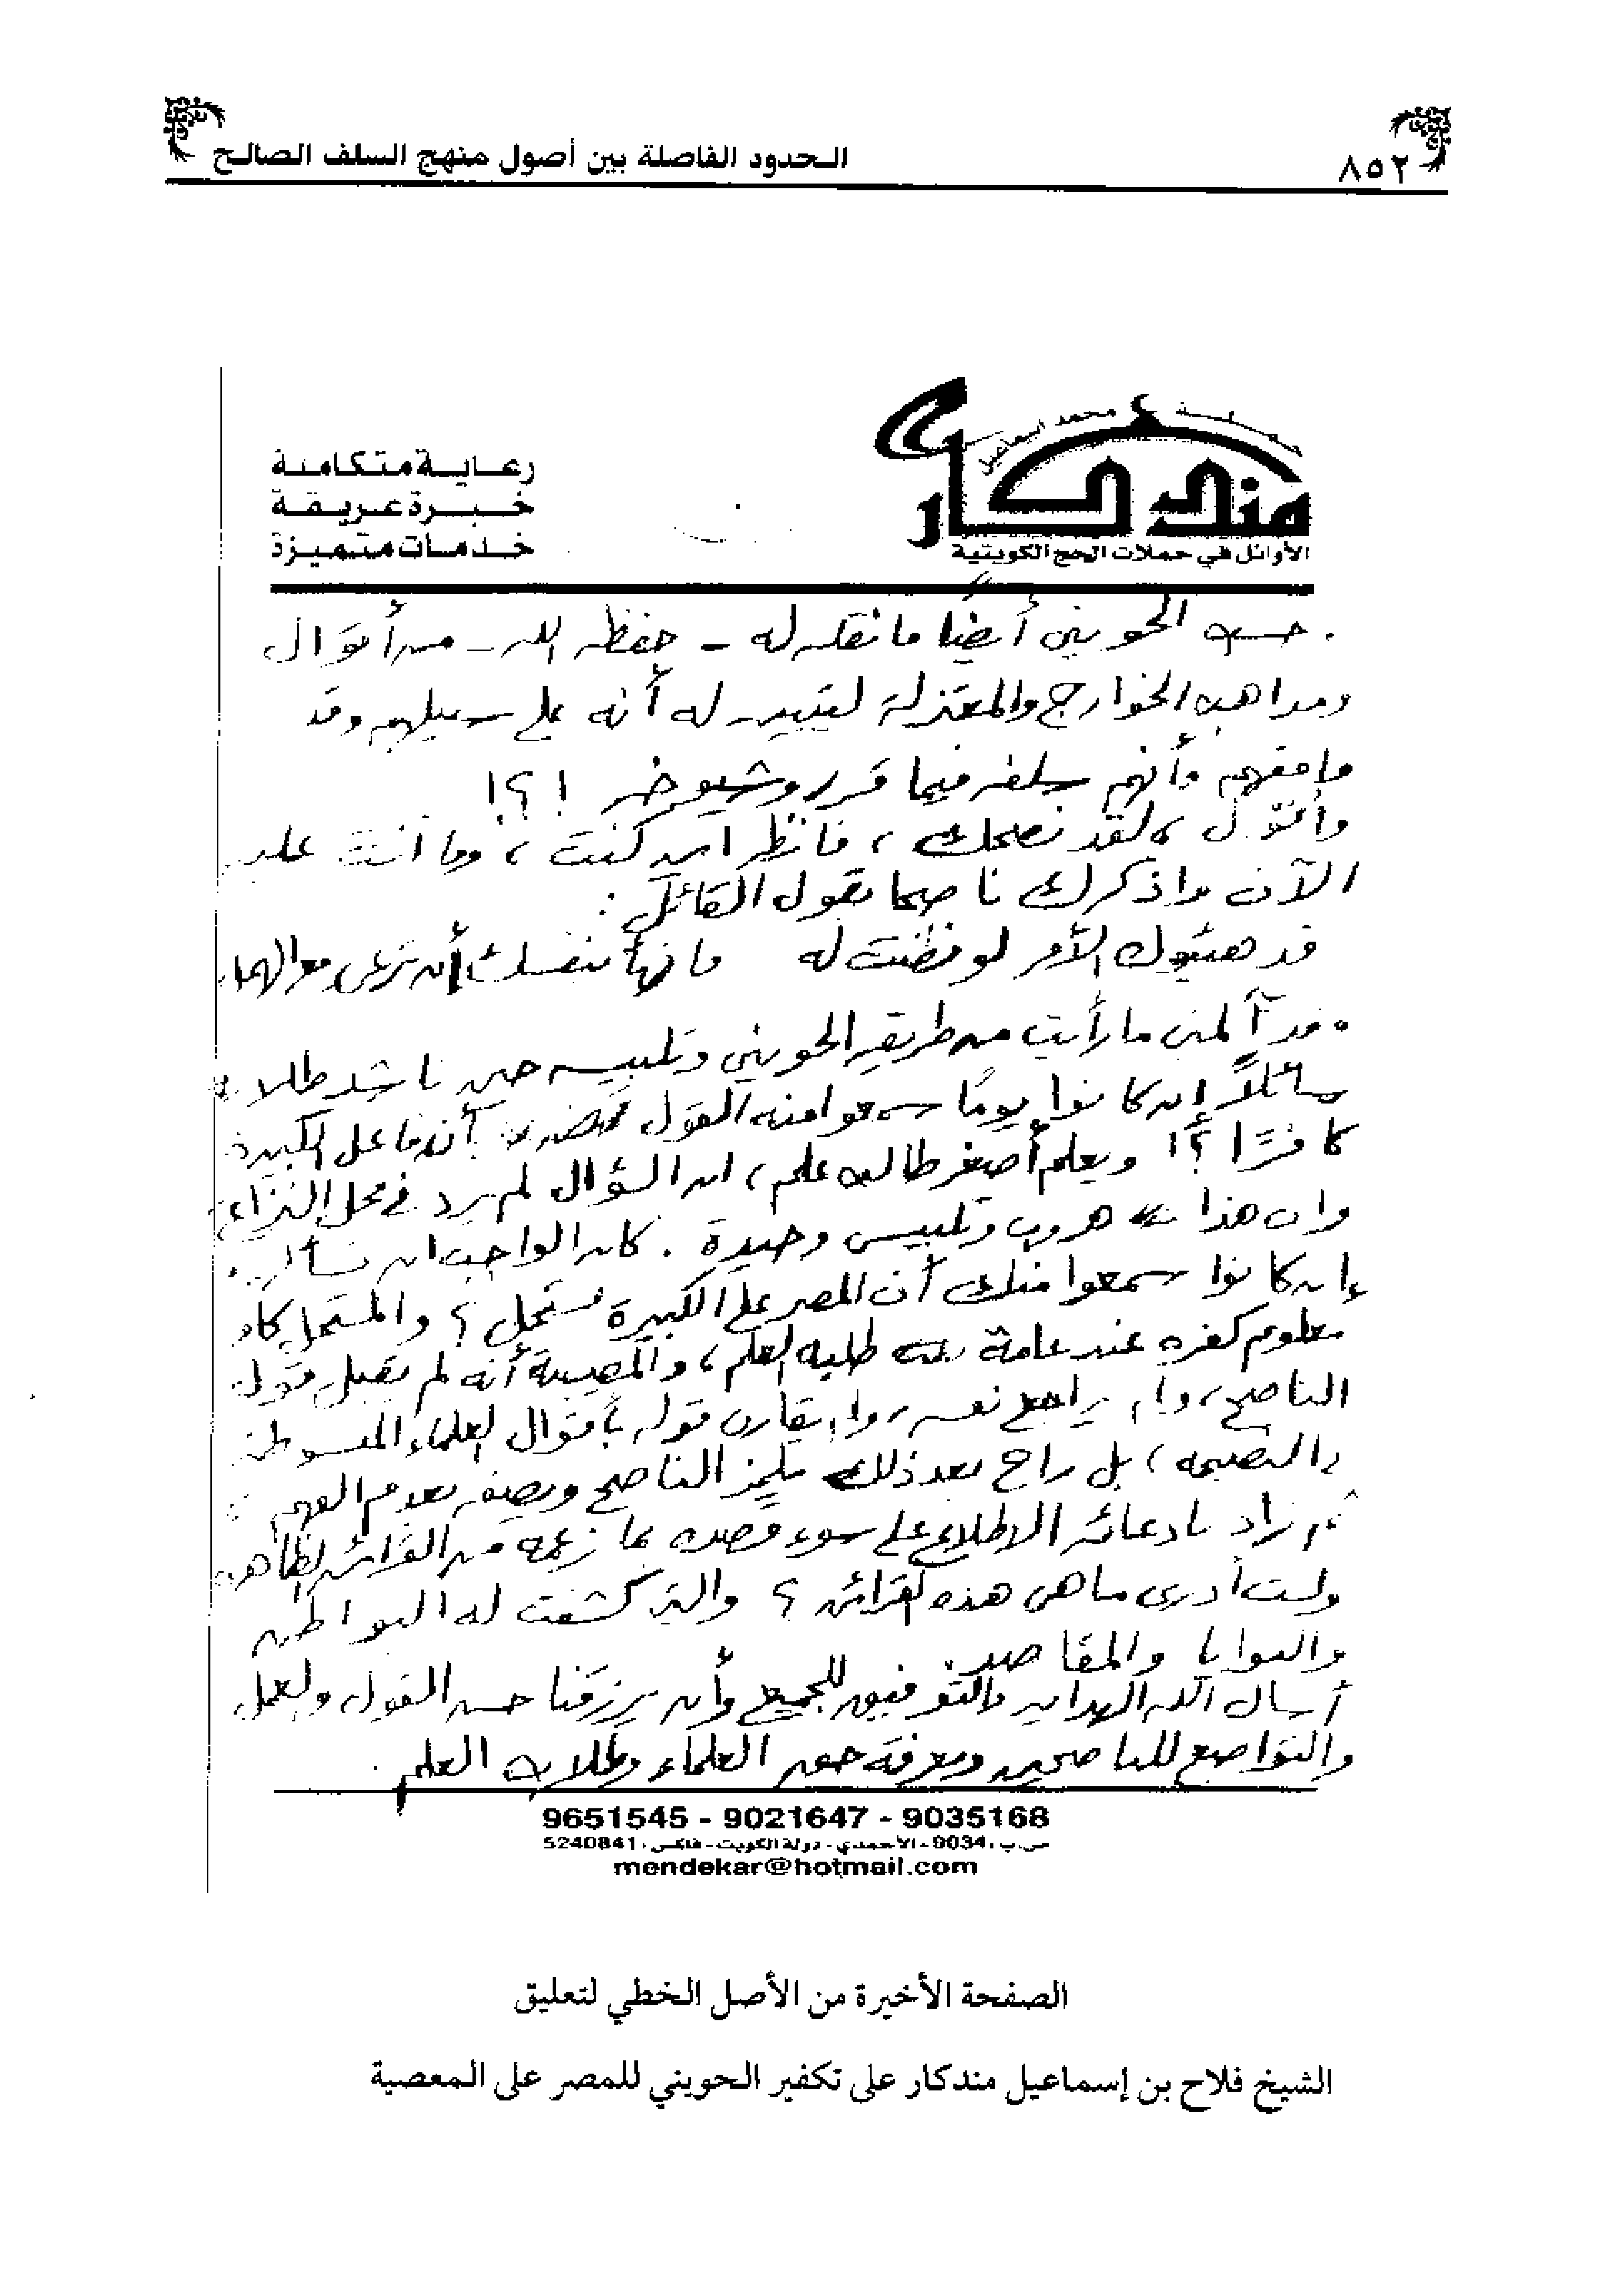 ٨٥٢
الحدود الفاصلة بين أصول منهج السلف الصالح
حملة محمد إسماعيل
مندكار
الأوائل في حملات الحج الكويتية
رعاية متكاملة
خبرة عريقة
خدمات متميزة
. حسب الحويني أيضًا ما نقله له - حفظه الله - من أقوال
ومذاهب الخوارج والمعتزلة ليتبين له أنه على سبيلهم وقد
وافقهم وأنهم سلفه فيما قرر وشيوخه !؟!
وأقول لقد نصحك، فانظر اين كنت، وما أنت عليه
الآن واذكرك ناصحا بقول القائل:
قد هيئوك لأمر لو فطنت له فانهأ بنفسك أن ترعى مع الهمل
وقد آلمني ما رأيت من طريقة الحويني وتلبيسه حين ناشد طلابه
سائلاً إن كانوا يومًا سمعوا منه القول بأن فاعل الكبيرة
كافرًا ؟! ويعلم أصغر طالب علم، ان السؤال لم يرد في محل النزاع
وان هذا هروب وتلبيس وحيدة . كان الواجب ان تسأل
إن كانوا سمعوا منك أن المصر على الكبيرة مستحل ؟ والمستحل كافر
معلوم كفره عند عامة طلبة العلم، والمصيبة أنه لم يقبل قول
الناصح، ولم يراجع نفسه، ولم يقارن قوله بأقوال العلماء المبسوطة
بالنصيحة، بل راح بعد ذلك يلمز الناصح ويصفه بعدم الفهم
ثم زاد بادعائه الاطلاع على سوء قصده بما زعمه من القرائن الظاهرة
ولست أدري ما هي هذه القرائن ؟ والتي كشفت له البواطن
والنوايا والمقاصد.
أسأل الله الهداية والتوفيق للجميع وأن يرزقنا حسن القول والعمل
والتواضع للناصحين ومعرفة حق العلماء وطلاب العلم .
9651545 - 9021647 - 9035168
ص.ب : 9034 - الأحمدي - دولة الكويت - فاكس : 5240841
mendekar@hotmail.com
الصفحة الأخيرة من الأصل الخطي لتعليق
الشيخ فلاح بن إسماعيل مندكار على تكفير الحويني للمصر على المعصية